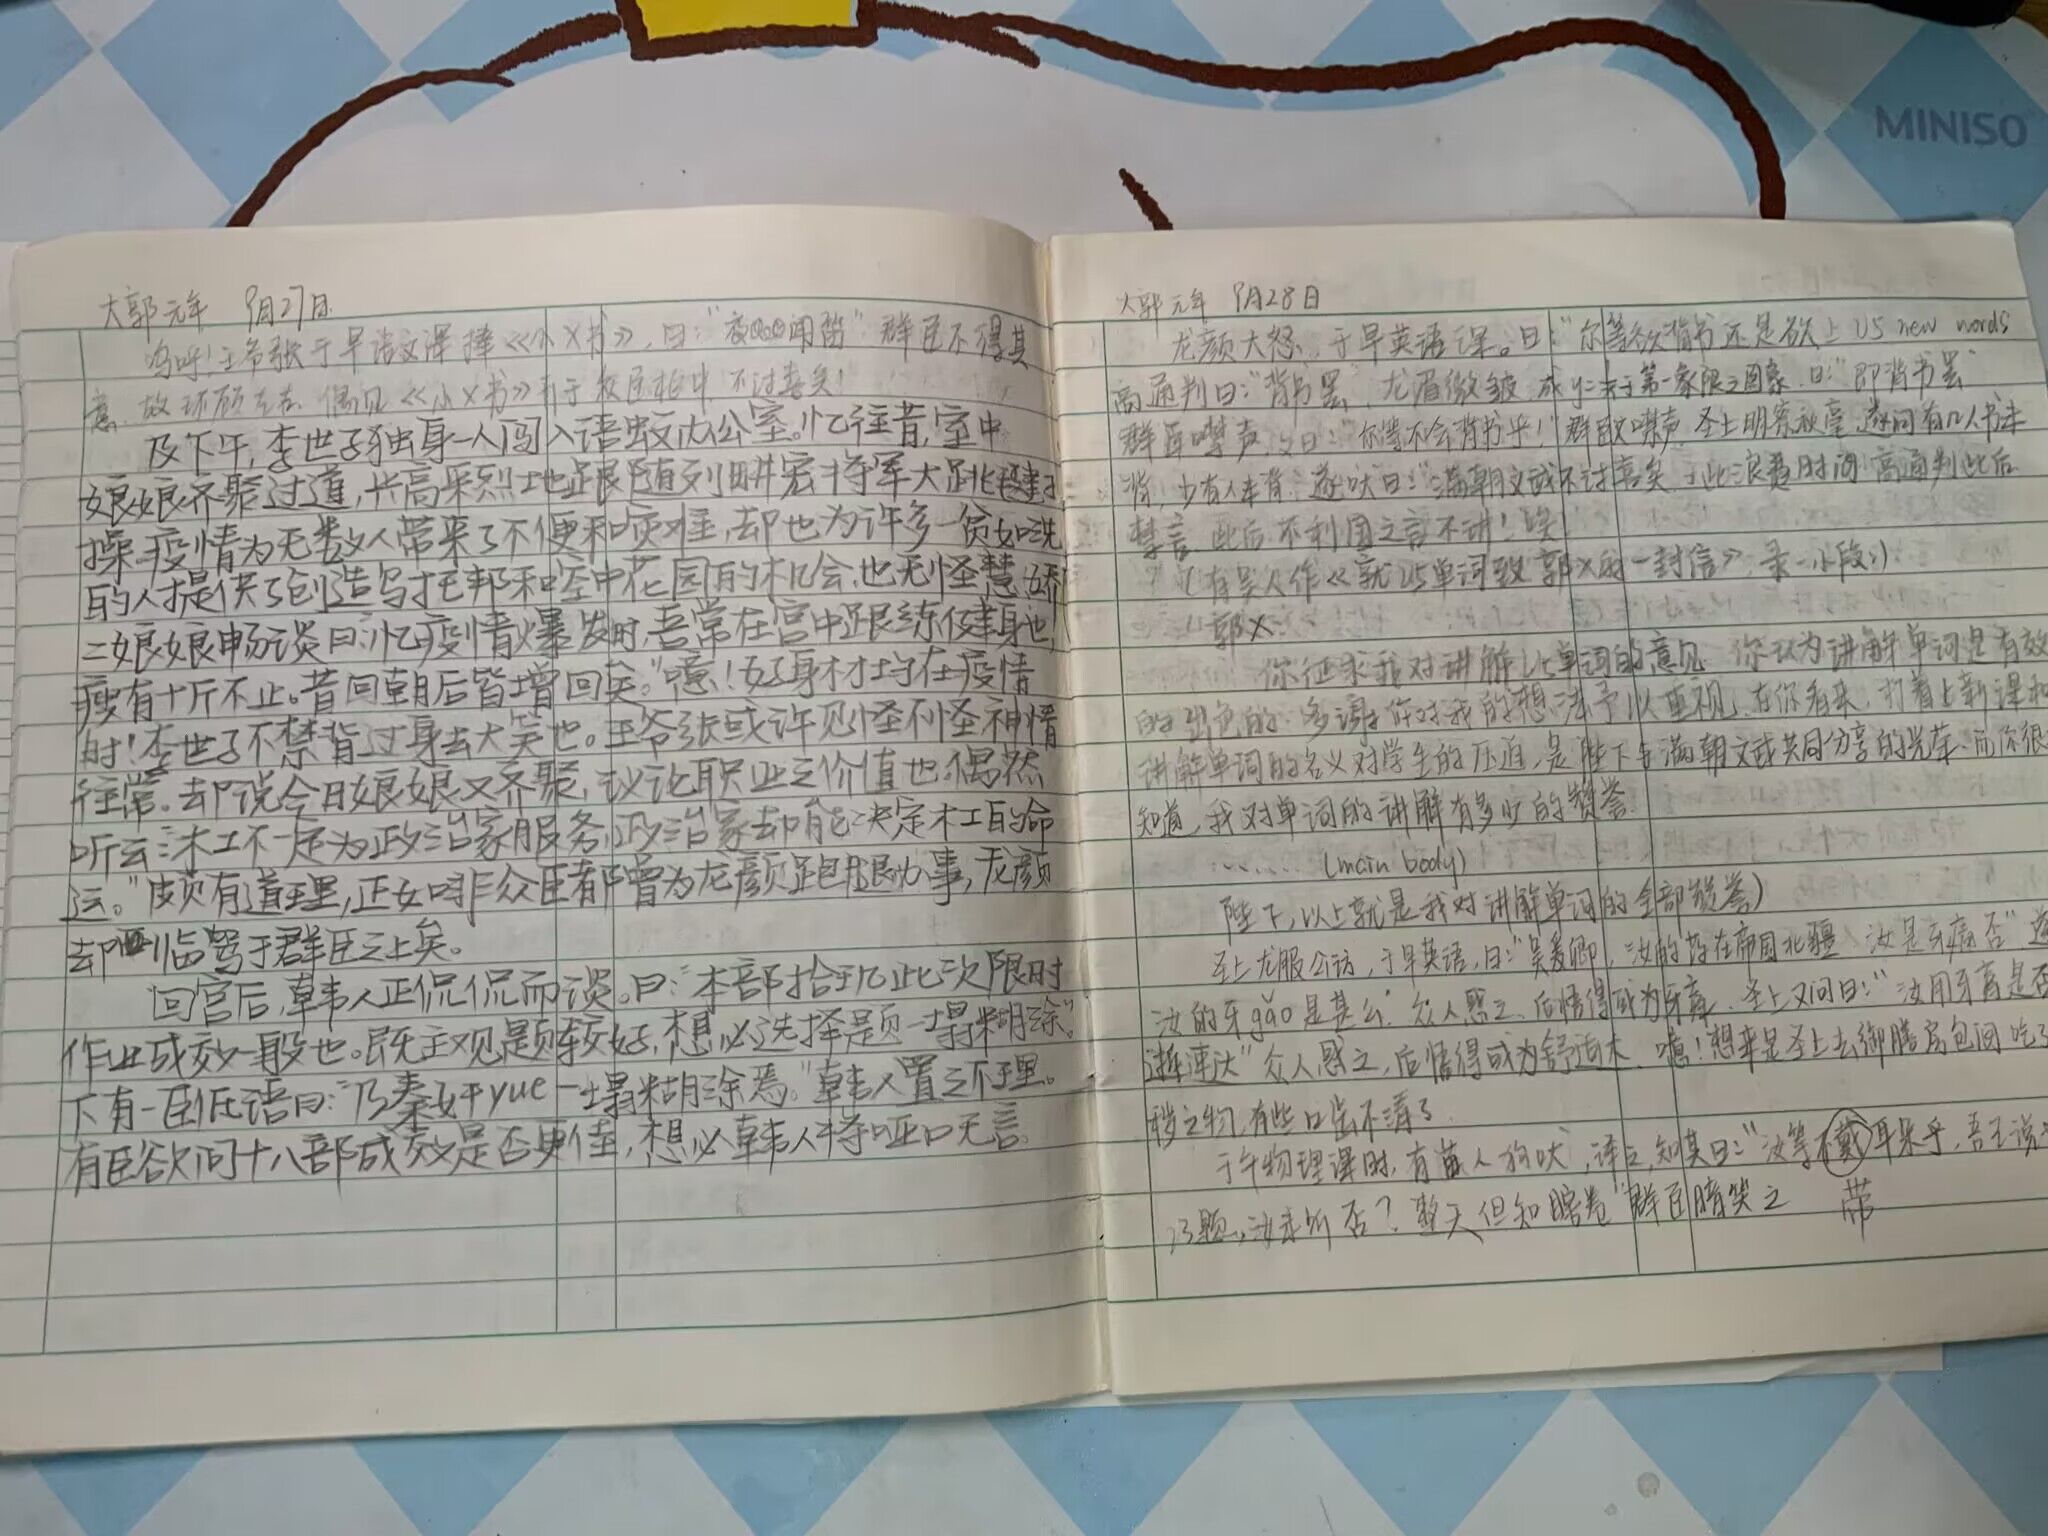 MINISO
大郭元年 9月27日
呜呼!王爷张于早语文课捧《小X书》,曰:"夜闻笛"群臣不得其
意,故环顾左右,偶见《小X书》于桌中,不过喜矣!
及下午,李世子独身一人闯入语数办公室。忆往昔,室中
娘娘齐聚过道,兴高采烈地跟随刘畊宏将军大跳毽子
操。疫情为无数人带来了不便和灾难,却也为许多一贫如洗
的人提供了创造乌托邦和空中花园的机会,也无怪慧、娇
二娘娘畅谈曰:"忆疫情爆发时,吾常在宫中跟练健身也,
瘦有十斤不止。昔回朝后皆增回矣。"噫!好身材均在疫情
时!李世子不禁背过身去大笑也。王爷张或许见怪不怪,神情
往常。却说今日娘娘又齐聚,议论职业之价值也。偶然
听云:"木工不一定为政治家服务,政治家却能决定木工的命
运。"颇有道理,正如非众臣都曾为龙颜跑腿办事,龙颜
却临驾于群臣之上矣。
回宫后,韩人正侃侃而谈。曰:"本部拾玖此次限时
作业成效一般也。既主观题较好,想必选择题一塌糊涂。"
下有一臣低语曰:"乃秦好yue一塌糊涂焉。"韩人置之不理。
有臣欲问十八部成效是否更佳,想必韩人将哑口无言。
大郭元年 9月28日
龙颜大怒,于早英语课。曰:"尔等欲背书还是欲上U5 new words
高通判曰:"背书罢",龙眉微皱,成于第一象限之图象,曰:"即背书罢
群臣噤声,又曰:"尔等不会背书乎!"群臣噤声,圣上明察秋毫,遂问有几人书未
背,少有人未背,遂吠曰:"满朝文武不过喜矣,于此浪费时间,高通判此后
禁言,此后不利国之言不讲!笑!
(有吴人作《就U5单词致郭X的一封信》,录一小段:)
郭X
你征求我对讲解U5单词的意见,你认为讲解单词是有效
的出色的,多谢你对我的想法予以重视,在你看来,打着上新课和
讲解单词的名义对学生的压迫,是陛下与满朝文武共同分享的光荣,而你很
知道,我对单词的讲解有多少的赞誉
......(main body)
陛下,以上就是我对讲解单词的全部赞誉)
圣上龙服公访,于早英语,曰:"吴爱卿,汝的在帝国北疆,汝是牙痛否"遂
汝的牙gāo是甚么"众人惑之,后悟得或为牙膏,圣上又问曰:"汝用牙膏是否
"众人惑之,后悟得或为舒适木,噫!想来是圣上去御膳房包间吃了
秽之物,有些口齿不清了.
于午物理课时,有苗人狗吠,译之,知其曰:"汝等不戴耳朵乎,吾王说
13题,汝未听否?整天但知瞎卷"群臣暗笑之
带